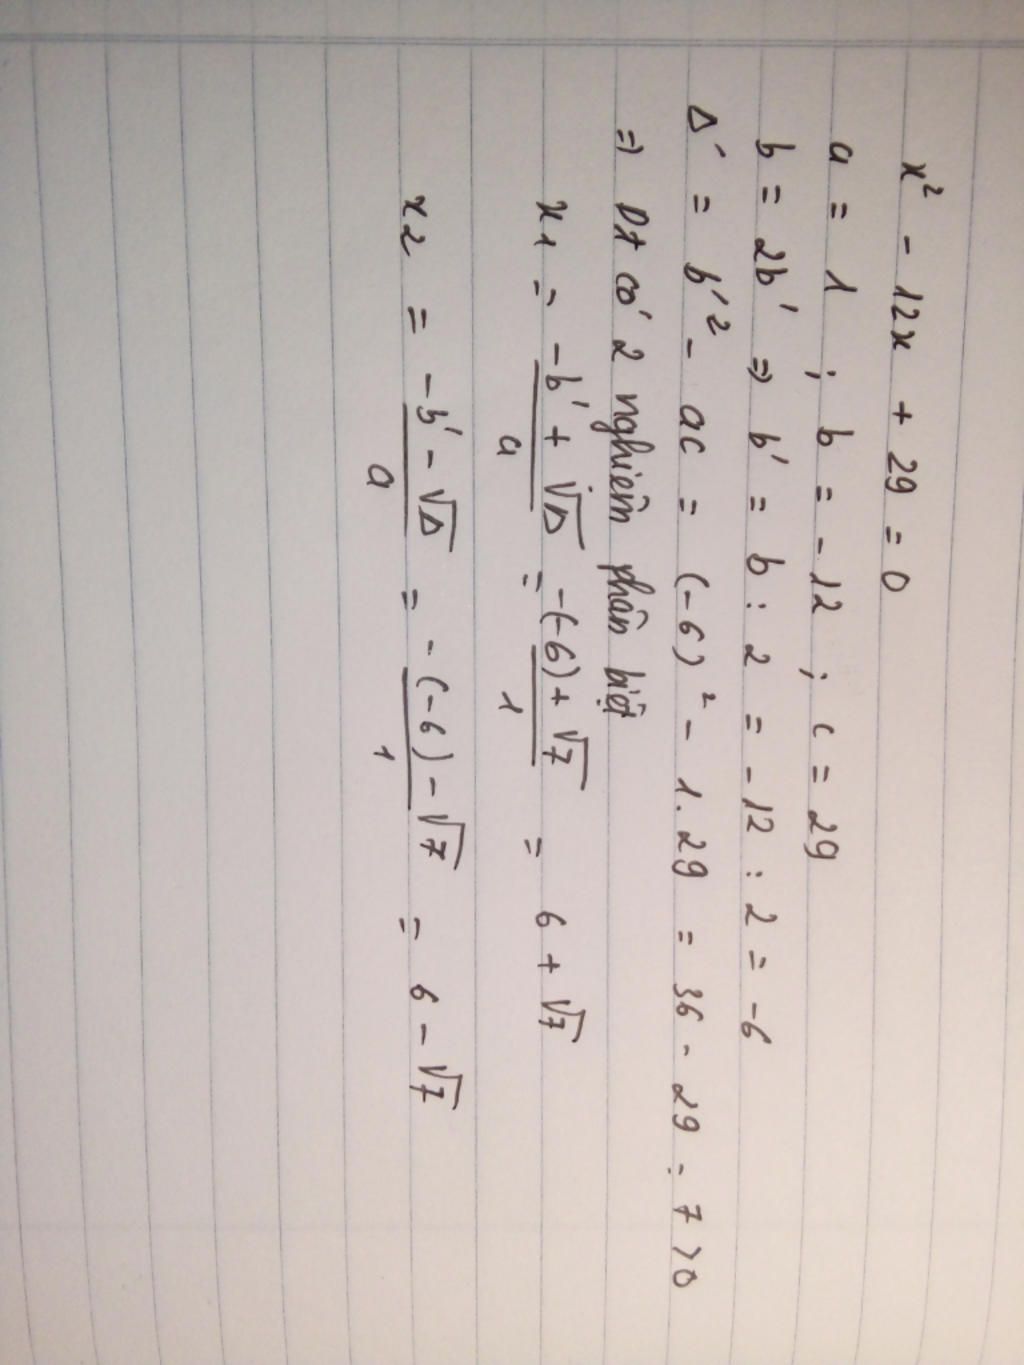 x² - 12x + 29 = 0
a = 1 ; b = -12 ; c = 29
b = 2b' => b' = b : 2 = -12 : 2 = -6
Δ' = b'² - ac = (-6)² - 1.29 = 36 - 29 = 7 > 0
=> Pt có 2 nghiệm phân biệt
x1 = (-b' + √Δ)/a = (-(-6) + √7)/1 = 6 + √7
x2 = (-b' - √Δ)/a = (-(-6) - √7)/1 = 6 - √7